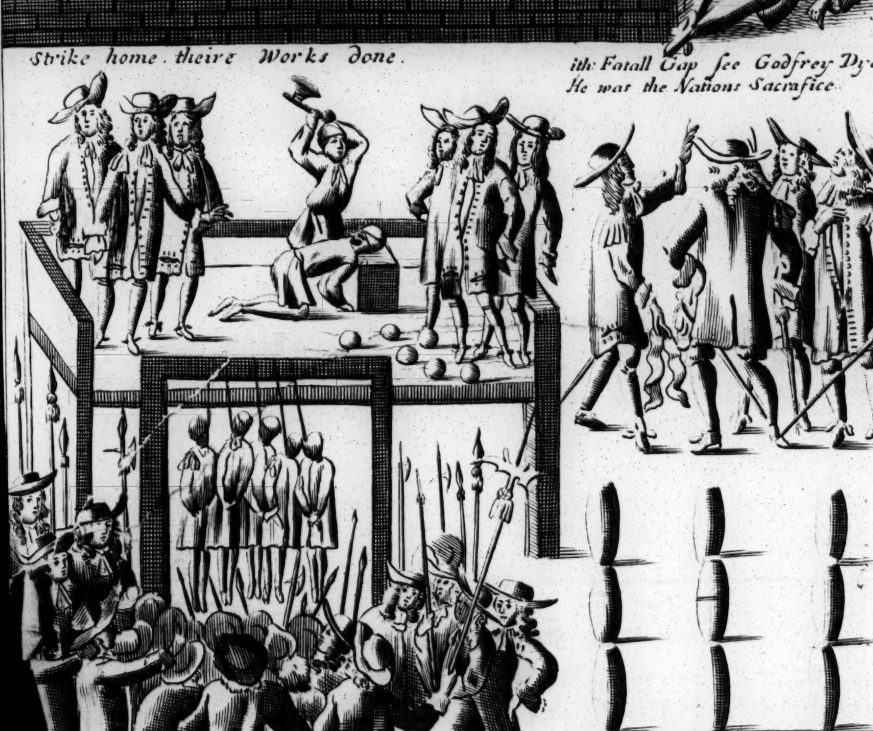 Strike home. theire Works done.
ith Fatall Gap see Godfrey
He was the Nations Sacrafice..